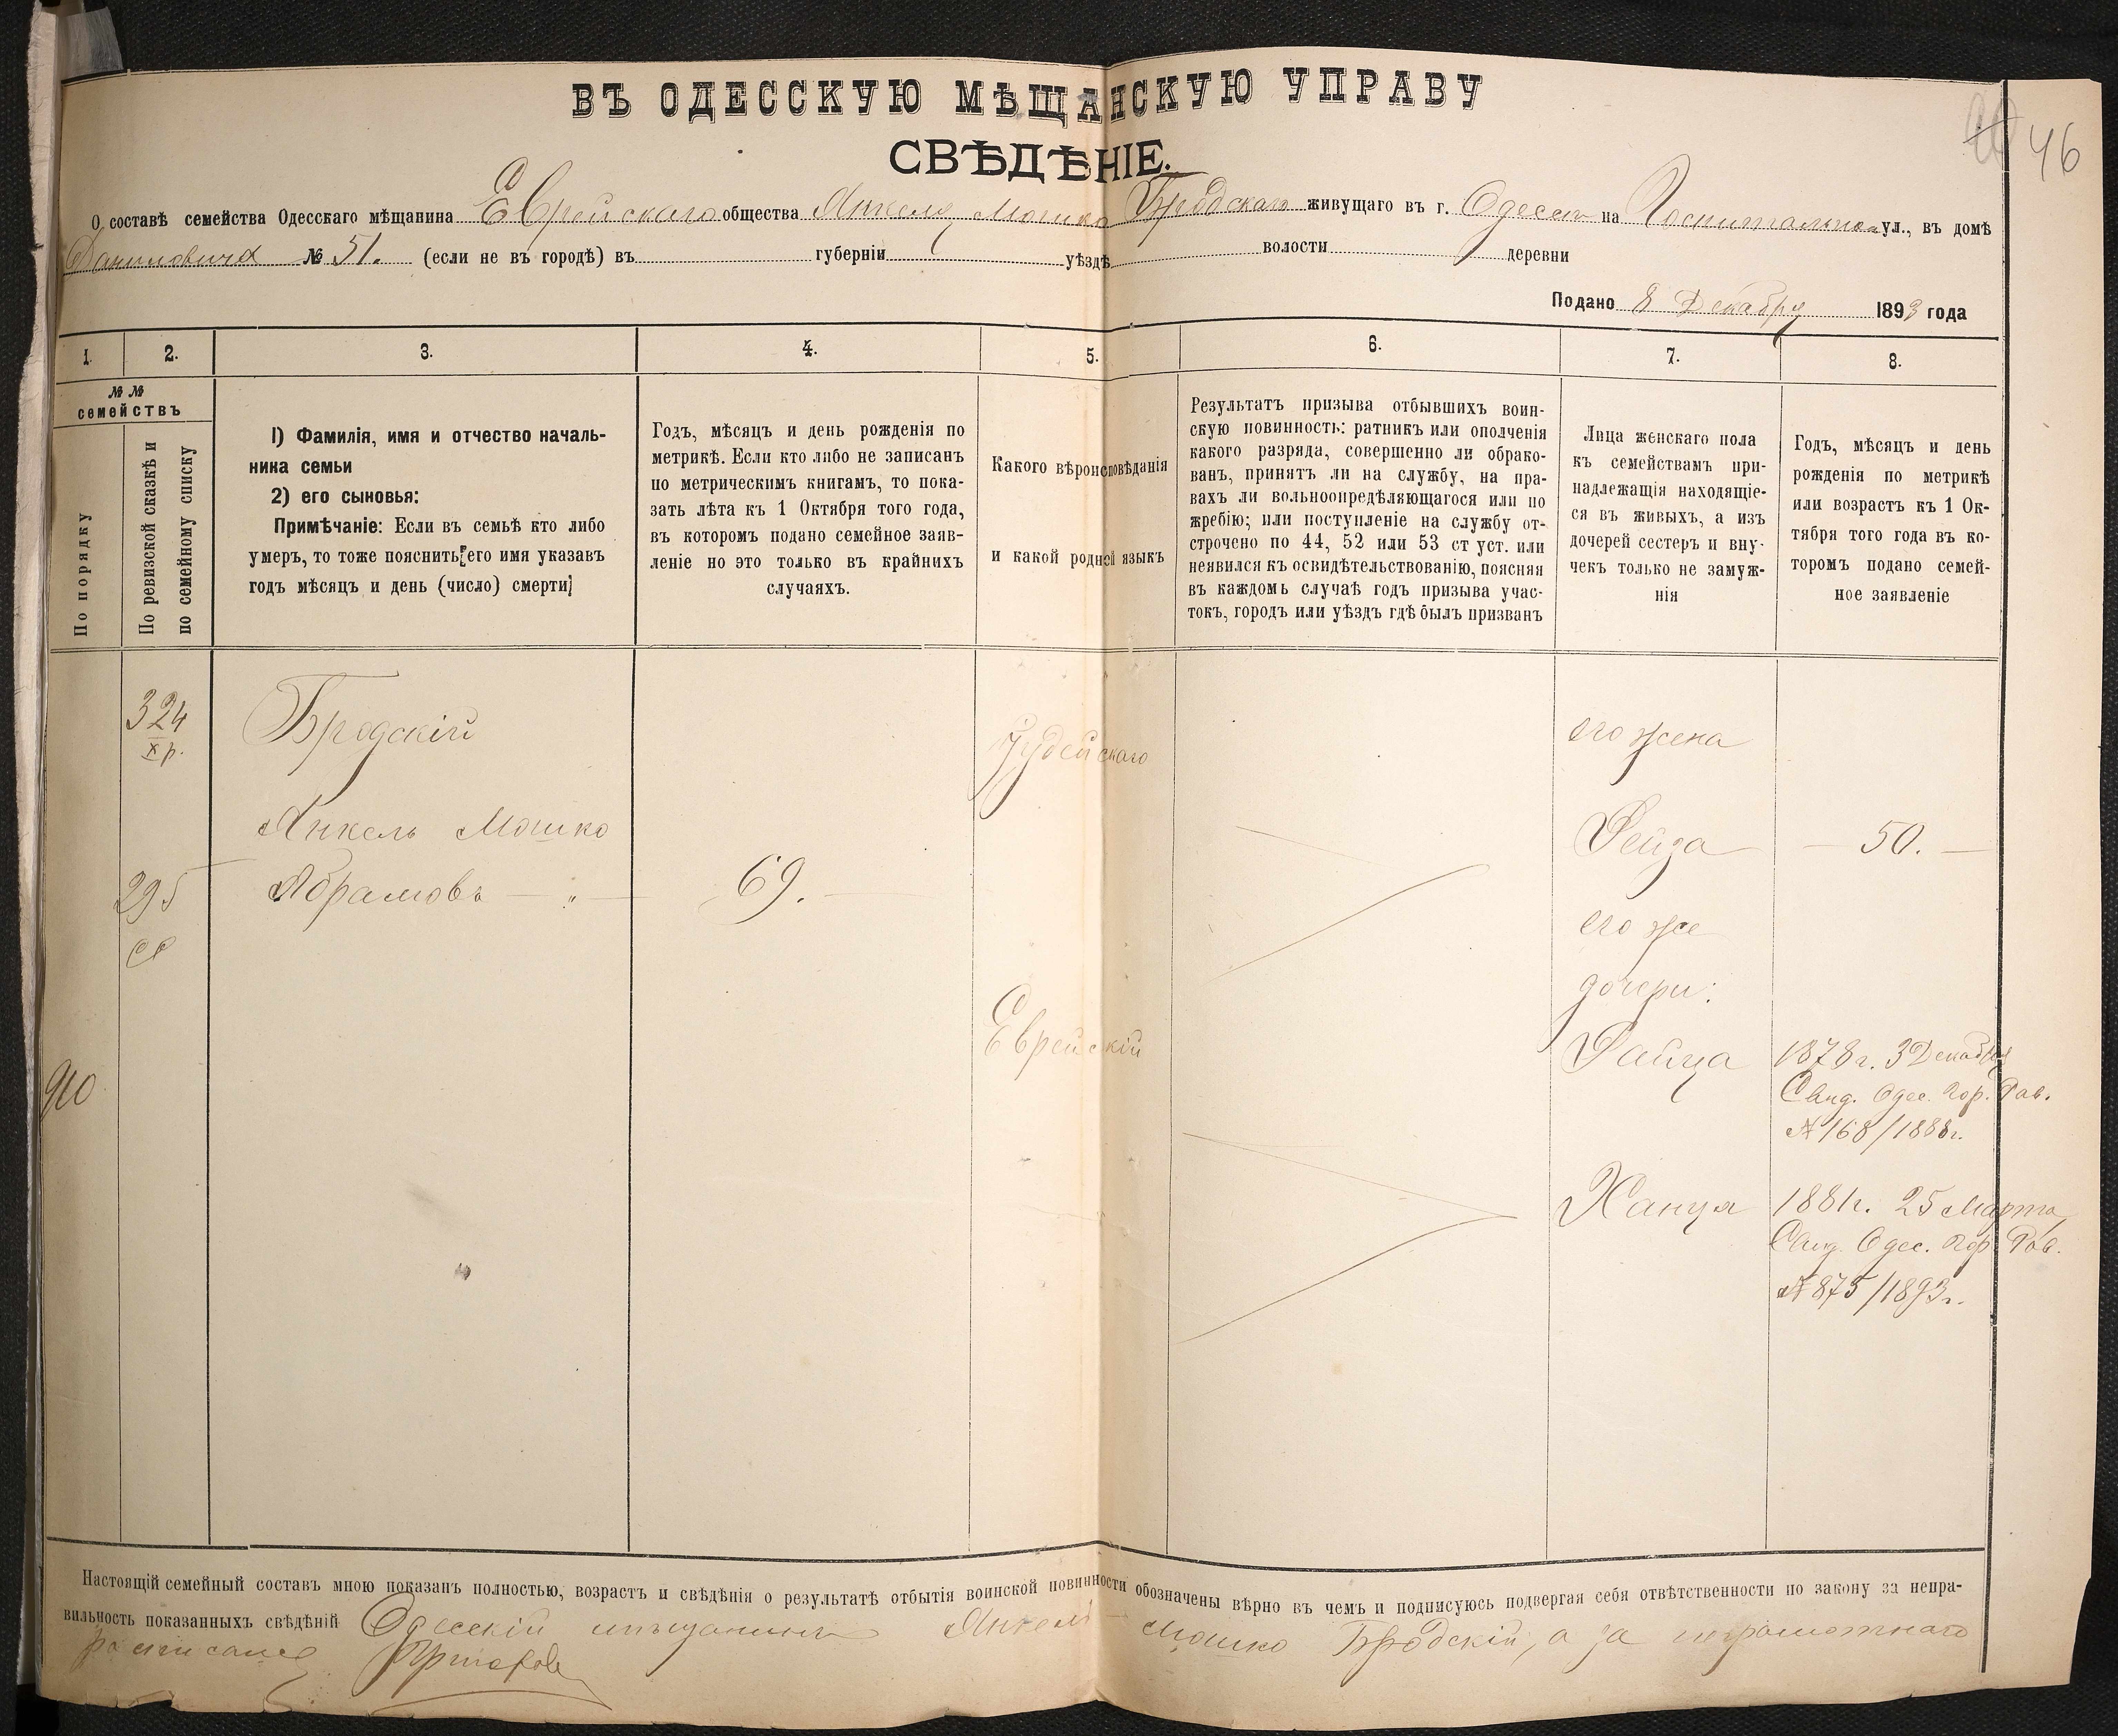 ВЪ ОДЕССКУЮ МѢЩАНСКУЮ УПРАВУ
СВѢДѢНІЕ.
46
О составѣ семейства Одесскаго мѣщанина Еврейскаго общества Янкеля Мошко Бродскаго живущаго въ г. Одессѣ на Госпитальной ул., въ домѣ
Даниловича № 51. (если не въ городѣ) въ губерніи уѣздѣ волости деревни
Подано 8 Декабря 1893 года
1. 2. 3. 4. 5. 6. 7. 8.
№№
семействъ
По порядку
По ревизской сказкѣ и
по семейному списку
1) Фамилія, имя и отчество началь-
ника семьи
2) его сыновья:
Примѣчаніе: Если въ семьѣ кто либо
умеръ, то тоже пояснить его имя указавъ
годъ мѣсяцъ и день (число) смерти
Годъ, мѣсяцъ и день рожденія по
метрикѣ. Если кто либо не записанъ
по метрическимъ книгамъ, то пока-
зать лѣта къ 1 Октября того года,
въ которомъ подано семейное заяв-
леніе но это только въ крайнихъ
случаяхъ.
Какого вѣроисповѣданія
и какой родной языкъ
Результатъ призыва отбывшихъ воин-
скую повинность: ратникъ или ополченія
какого разряда, совершенно ли обрако-
ванъ, принятъ ли на службу, на пра-
вахъ ли вольноопредѣляющагося или по
жребію; или поступленіе на службу от-
строчено по 44, 52 или 53 ст уст. или
неявился къ освидѣтельствованію, поясняя
въ каждомъ случаѣ годъ призыва учас-
токъ, городъ или уѣздъ гдѣ былъ призванъ
Лица женскаго пола
къ семействамъ при-
надлежащія находящіе-
ся въ живыхъ, а изъ
дочерей сестеръ и вну-
чекъ только не замуж-
нія
Годъ, мѣсяцъ и день
рожденія по метрикѣ
или возрастъ къ 1 Ок-
тября того года въ ко-
торомъ подано семей-
ное заявленіе
324
X р.
295
910
Бродскій
Янкель Мошко
Абрамовъ — " —
69.
Іудейскаго
Еврейскій
его жена
Рейза — 50. —
его же
дочери:
Райца 1878 г. 3 Декабря
Свид. Одес. Гор. Рав.
№ 168/1888 г.
Ханця 1881 г. 25 Марта
Свид. Одес. Гор. Рав.
№ 875/1893 г.
Настоящій семейный составъ мною показанъ полностью, возрастъ и свѣдѣнія о результатѣ отбытія воинской повинности обозначены вѣрно въ чемъ и подписуюсь подвергая себя отвѣтственности по закону за непра-
вильность показанныхъ свѣдѣній Одесскій мѣщанинъ Янкель Мошко Бродскій, а за неграмотнаго
росписался